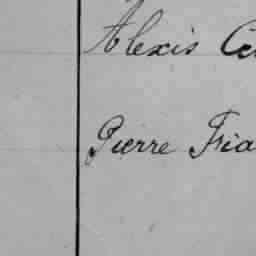 Alexis Ce
Pierre Fria